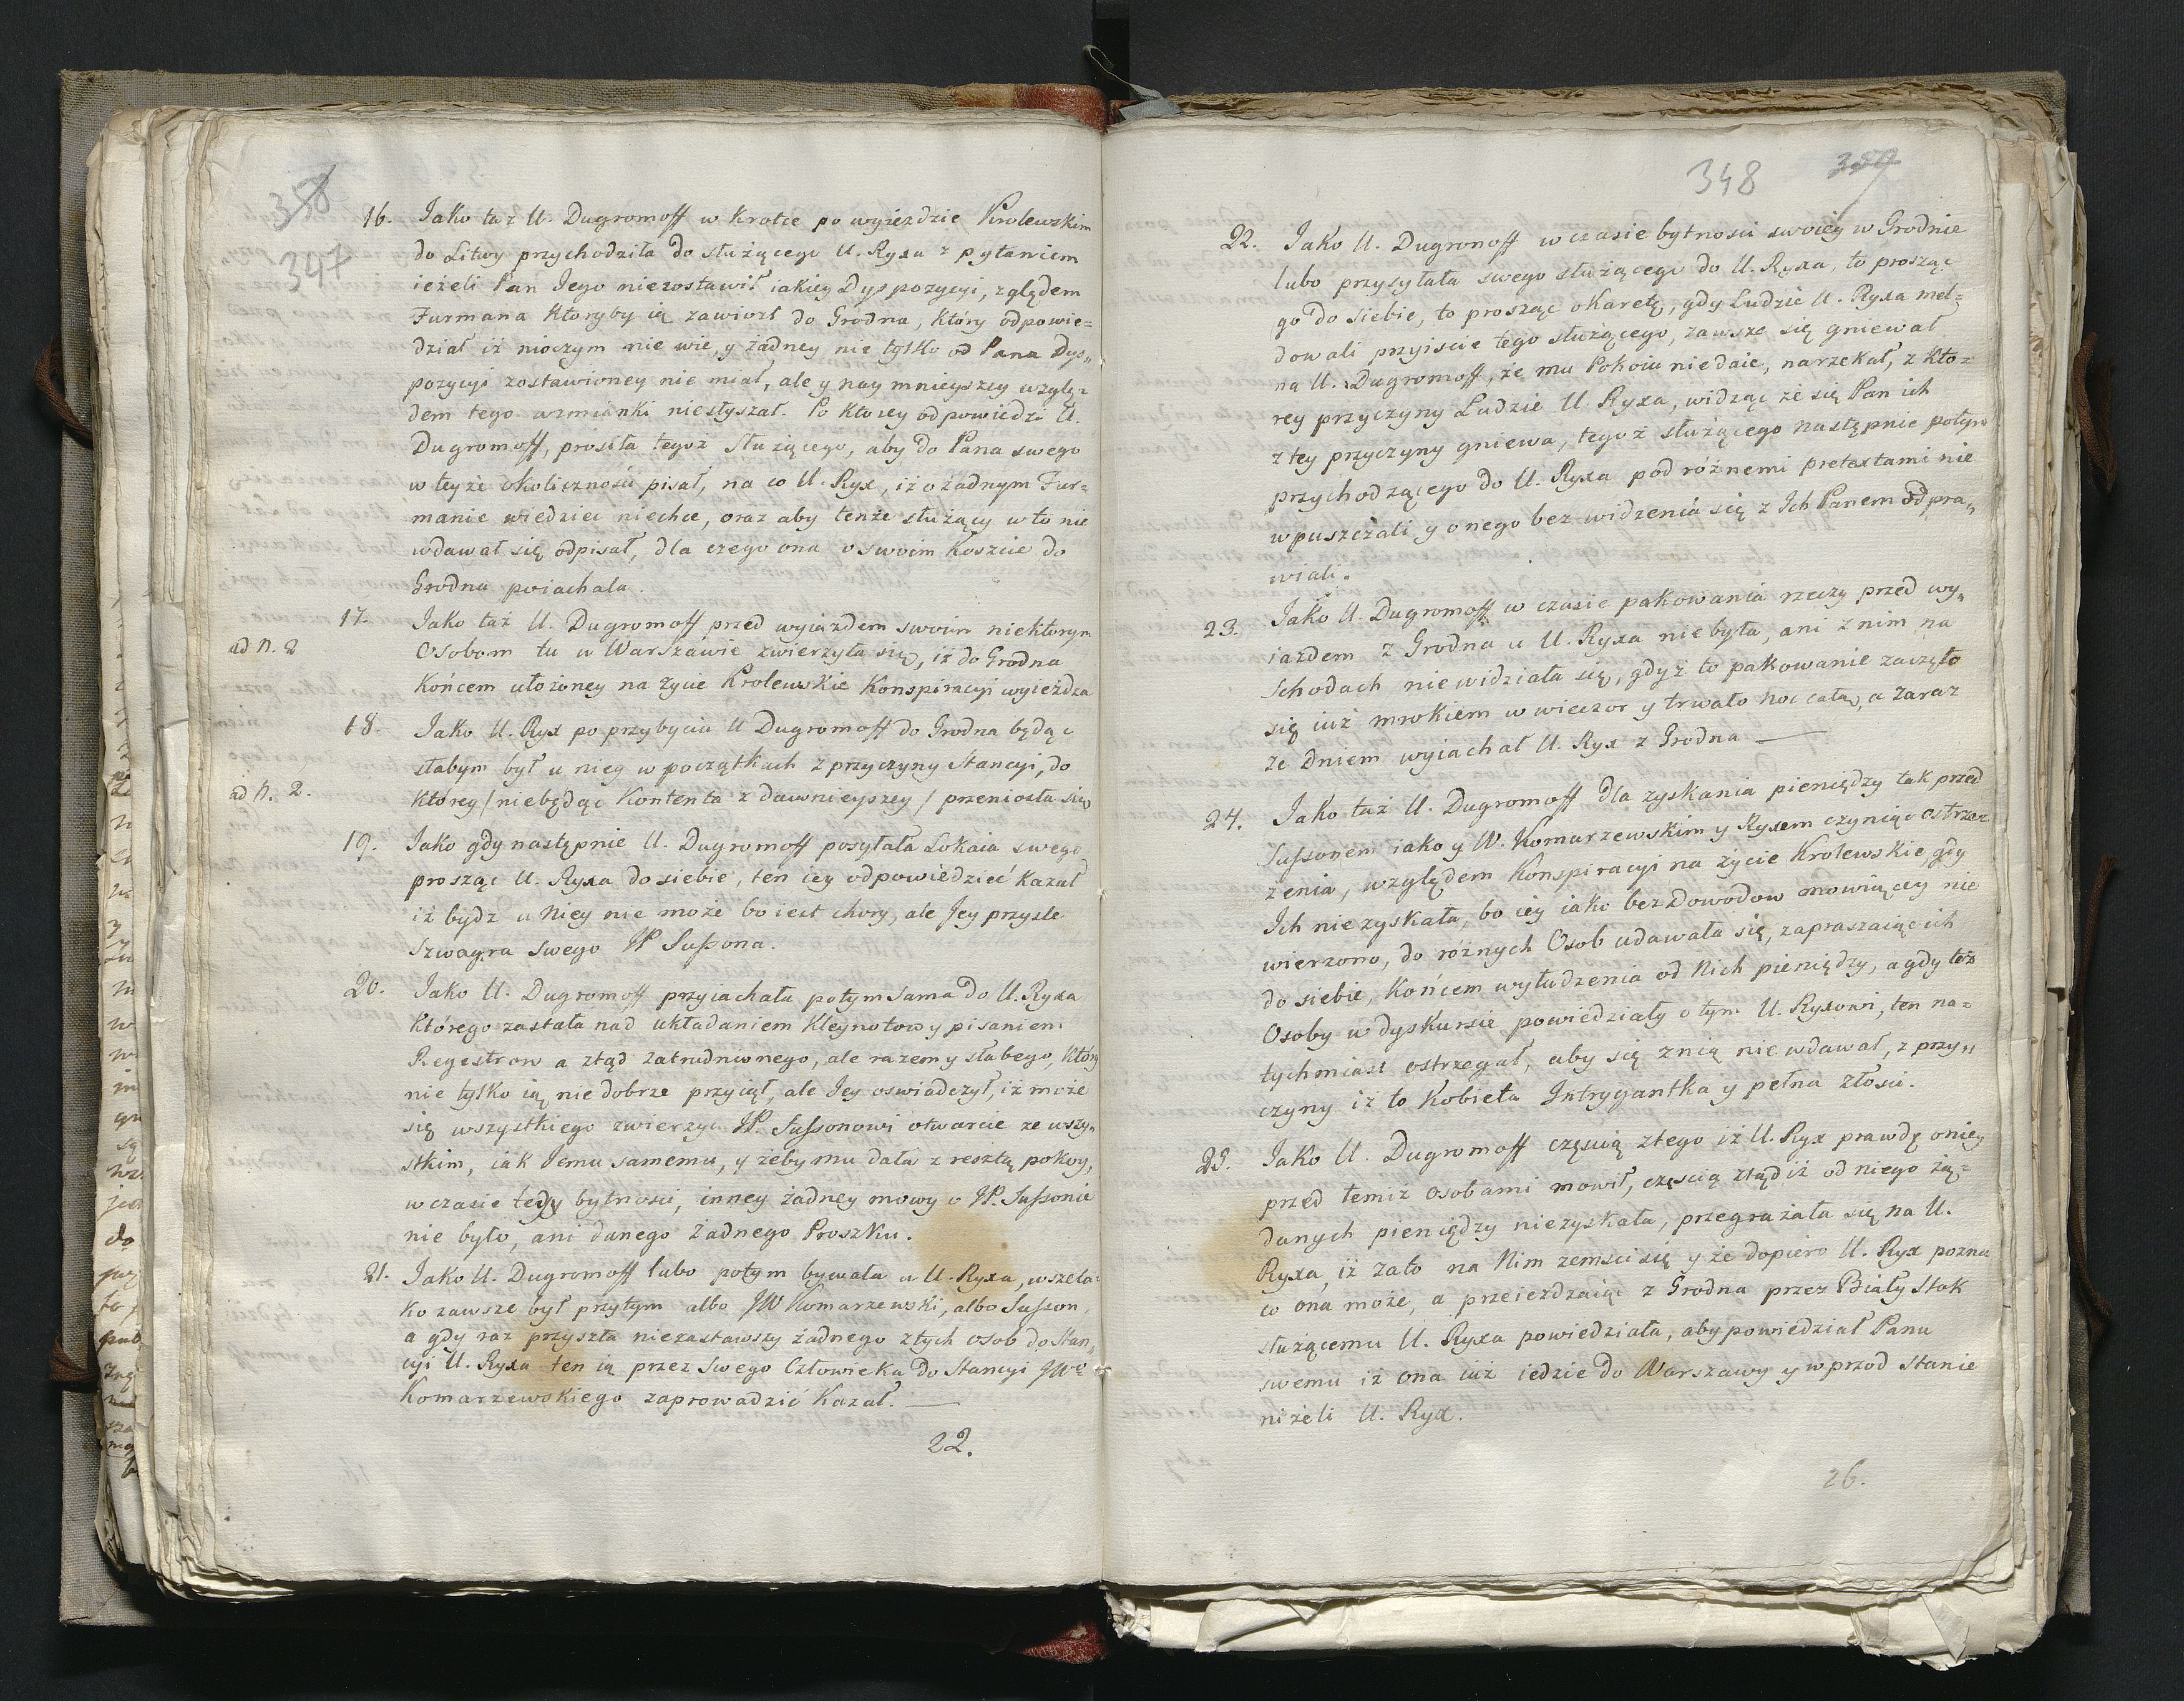 358
347
16. Jako taż U. Dugromoff w krotce po wyieździe Krolewskim
do Litwy przychodziła do służącego U. Ryxa z pytaniem
ieżeli Pan Jego niezostawił iakiey Dyspozycyi, zględem
Furmana ktoryby ią zawiozł do Grodna, który odpowie=
dział iż nioczym nie wie, y żadney nie tylko od Pana Dys„
pozycyi zostawioney nie miał, ale y naymnieyszey wzglę=
dem tego wzmianki niesłyszał. Po ktorey odpowiedzi U.
Dugromoff, prosiła tegoż Służącego, aby do Pana swego
w teyże okoliczności pisał, na co U. Ryx, iż o żadnym Fur=
manie wiedzieć niechce, oraz aby tenże służący w to nie
wdawał się odpisał, dla czego ona o swoim koszcie do
Grodna poiachała.
17. Jako taż U. Dugromoff przed wyiazdem swoim niektorym
ad N. 2 Osobom tu w Warszawie zwierzyła się, iż do Grodna
końcem ułożoney na życie Krolewskie Konspiracyi wyieżdza
18. Jako U. Ryx po przybyciu U Dugromoff do Grodna będąc
słabym był u niey w początkach z przyczyny Stancyi, do
ad N. 2. ktorey / niebędąc kontenta z dawnieyszey / przeniosła się
19. Jako gdy następnie U. Dugromoff posyłała Lokaia swego
prosząc U. Ryxa do siebie, ten iey odpowiedzieć kazał
iż bydz u Niey nie może bo iest chory, ale Jey przysle
szwagra swego JP Sussona.
20. Jako U. Dugromoff przyiachała potym sama do U. Ryxa
którego zastała nad układaniem Kleynotow y pisaniem
Regestrow a ztąd zatrudnionego, ale razem y słabego, który
nie tylko ią niedobrze przyiął, ale Jey oswiadczył, iż może
się wszystkiego zwierzyć JP. Sussonowi otwarcie ze wszy„
stkim, iak Jemu samemu, y żeby mu dała z resztą pokoy,
w czasie tedy bytnosci, inney żadney mowy o JP. Sussonie
nie było, ani danego żadnego Proszku.
21. Jako U. Dugromoff lubo potym bywała u U. Ryxa, wszela=
ko zawsze był przytym albo JW Komarzewski, albo Susson,
a gdy raz przyszła niezastawszy żadnego z tych osob do Stan„
cyi U. Ryxa ten ią przez swego Człowieka do Stancyi JWo
Komarzewskiego zaprowadzić kazał.
22.
348
359
22. Jako U. Dugronoff w czasie bytnosci swoiey w Grodnie
lubo przysyłała swego służącego do U. Ryxa, to prosząc
go do siebie, to prosząc o karetę, gdy Ludzie U. Ryxa mel=
dowali przyiscie tego służącego, zawsze się gniewał
na U. Dugromoff, że mu Pokoiu niedaie, narzekał, z kto=
rey przyczyny Ludzie U. Ryxa, widząc że się Pan ich
z tey przyczyny gniewa, tegoż służącego następnie potym
przychodzącego do U. Ryxa pod różnemi pretextami nie
wpuszczali y onego bez widzenia się z Ich Panem odpra„
wiali.
23. Jako U. Dugromoff w czasie pakowania rzeczy przed wy„
iazdem z Grodna u U. Ryxa niebyła, ani z nim na
Schodach niewidziała się, gdyż to pakowanie zaczęto
się iuż mrokiem w wieczor y trwało noc całą, a zaraz
ze dniem wyiachał U. Ryx z Grodna
24. Jako taż U. Dugromoff dla zyskania pieniędzy tak przed
Sussonem iako y W. Komarzewskim y Ryxem czyniąc ostrze=
żenia, względem Konspiracyi na życie Krolewskie, gdy
Ich niezyskała, bo iey iako bez Dowodow mowiącey nie
wierzono, do różnych Osob udawała się, zapraszaiąc ich
do siebie, końcem wyłudzenia od Nich pieniędzy, a gdy też
Osoby w dyskursie powiedziały o tym U. Ryxowi, ten na=
tychmiast ostrzegał, aby się z nią nie wdawał, z przy„
czyny iż to Kobieta Intrygantka y pełna złości.
25. Jako U. Dugromoff częscią z tego iż U. Ryx prawdę o niey
przed temiż osobami mowił, częscią ztąd iż od niego żą=
danych pieniędzy niezyskała, przegrażała się na U.
Ryxa, iż zato na Nim zemsci się y że dopiero U. Ryx pozna
co ona może, a przeieżdzaiąc z Grodna przez Biały Stok
służącemu U. Ryxa powiedziała, aby powiedział Panu
swemu iż ona iuż iedzie do Warszawy y wprzod stanie
niżeli U. Ryx.
26.